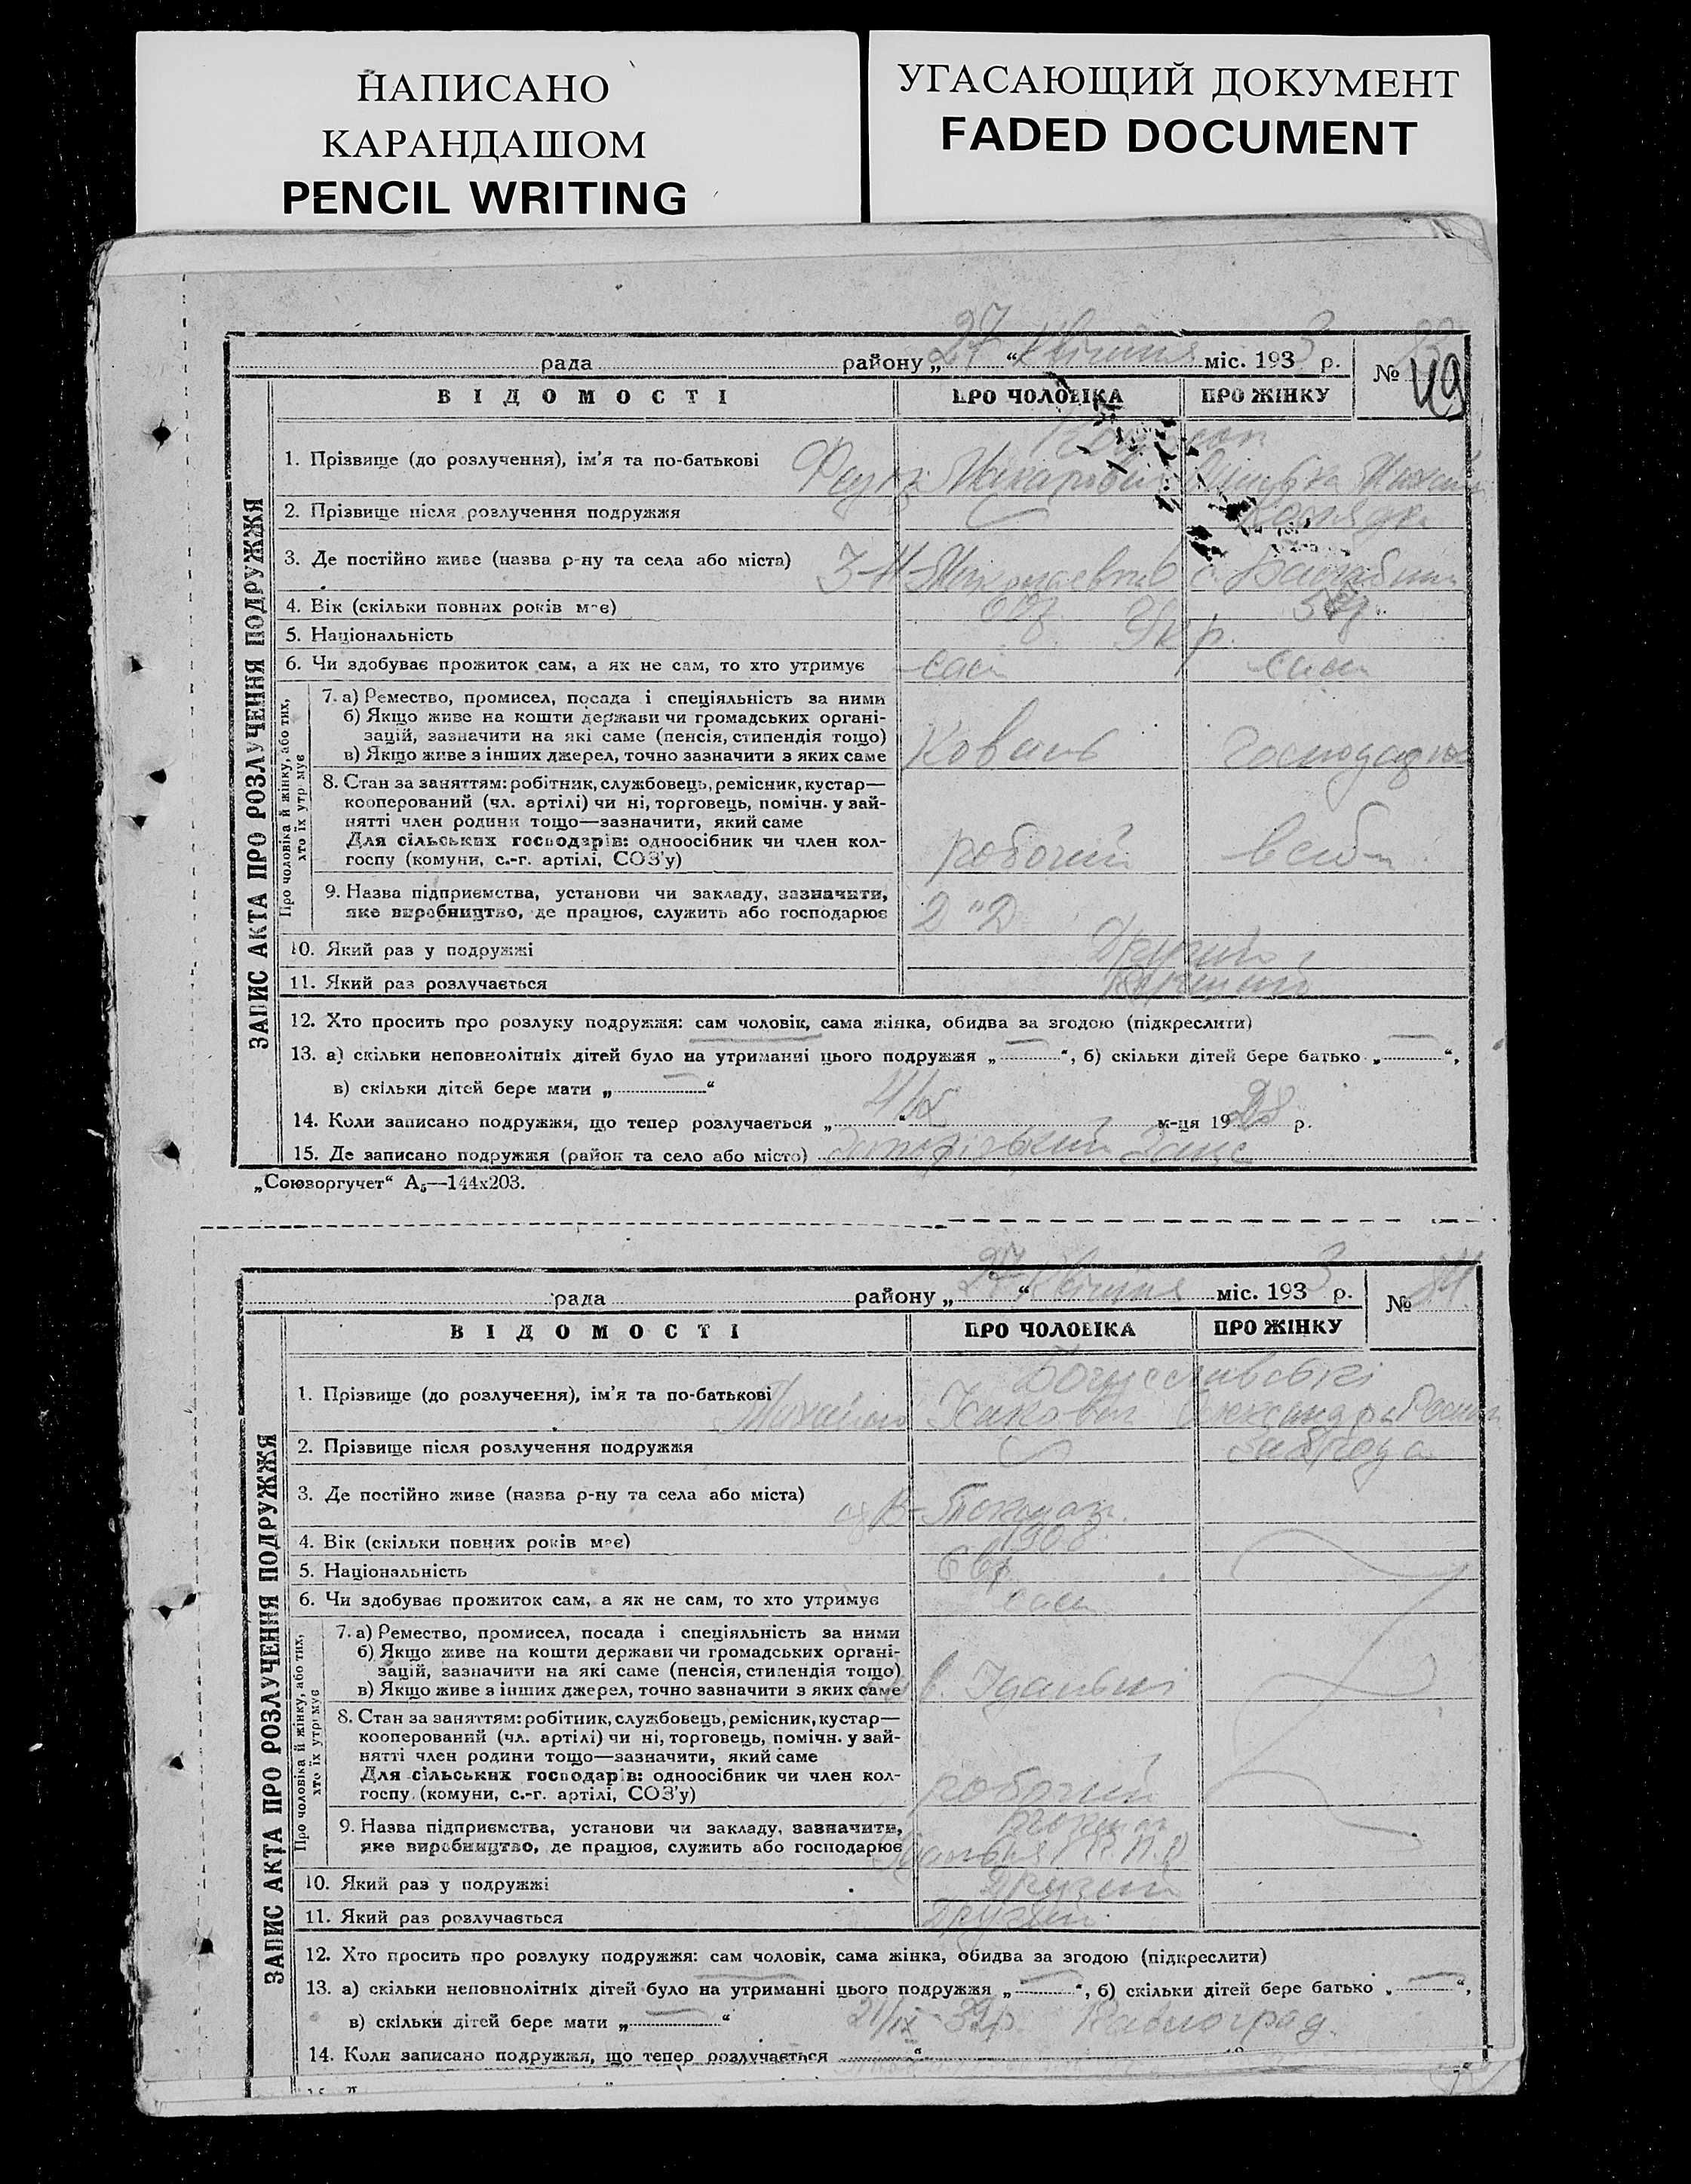 НАПИСАНО
КАРАНДАШОМ
PENCIL WRITING
УГАСАЮЩИЙ ДОКУМЕНТ
FADED DOCUMENT
рада району „27“ квітня міс. 1933 р. №
49
ВІДОМОСТІ ПРО ЧОЛОВІКА ПРО ЖІНКУ
ЗАПИС АКТА ПРО РОЗЛУЧЕННЯ ПОДРУЖЖЯ
1. Прізвище (до розлучення), ім'я та по-батькові
2. Прізвище після розлучення подружжя
3. Де постійно живе (назва р-ну та села або міста)
4. Вік (скільки повних років має)
5. Національність Укр.
6. Чи здобуває прожиток сам, а як не сам, то хто утримує сам сам
Про чоловіка й жінку, або тих, хто їх утримує
7. а) Ремество, промисел, посада і спеціяльність за ними
б) Якщо живе на кошти держави чи громадських органі-
зацій, зазначити на які саме (пенсія, стипендія тощо)
в) Якщо живе з інших джерел, точно зазначити з яких саме Коваль
8. Стан за заняттям: робітник, службовець, ремісник, кустар—
кооперований (чл. артілі) чи ні, торговець, помічн. у зай-
нятті член родини тощо—зазначити, який саме
Для сільських господарів: одноосібник чи член кол-
госпу (комуни, с.-г. артілі, СОЗ'у) робочий
9. Назва підприємства, установи чи закладу, зазначити,
яке виробництво, де працює, служить або господарює
10. Який раз у подружжі Другий
11. Який раз розлучається
12. Хто просить про розлуку подружжя: сам чоловік, сама жінка, обидва за згодою (підкреслити)
13. а) скільки неповнолітніх дітей було на утриманні цього подружжя „ — “, б) скільки дітей бере батько „ — “,
в) скільки дітей бере мати „ — “
14. Коли записано подружжя, що тепер розлучається „ “ м-ця 1928 р.
15. Де записано подружжя (район та село або місто)
„Союзоргучет“ А₅—144х203.
рада району „27“ квітня міс. 1933 р. № 84
ВІДОМОСТІ ПРО ЧОЛОВІКА ПРО ЖІНКУ
ЗАПИС АКТА ПРО РОЗЛУЧЕННЯ ПОДРУЖЖЯ
Богуславські
1. Прізвище (до розлучення), ім'я та по-батькові Михайло Олександра
2. Прізвище після розлучення подружжя
3. Де постійно живе (назва р-ну та села або міста) В-Токмак.
4. Вік (скільки повних років має) 1908
5. Національність Євр.
6. Чи здобуває прожиток сам, а як не сам, то хто утримує сам
Про чоловіка й жінку, або тих, хто їх утримує
7. а) Ремество, промисел, посада і спеціяльність за ними
б) Якщо живе на кошти держави чи громадських органі-
зацій, зазначити на які саме (пенсія, стипендія тощо)
в) Якщо живе з інших джерел, точно зазначити з яких саме їдальні
8. Стан за заняттям: робітник, службовець, ремісник, кустар—
кооперований (чл. артілі) чи ні, торговець, помічн. у зай-
нятті член родини тощо—зазначити, який саме
Для сільських господарів: одноосібник чи член кол-
госпу (комуни, с.-г. артілі, СОЗ'у) робочий
9. Назва підприємства, установи чи закладу, зазначити,
яке виробництво, де працює, служить або господарює
10. Який раз у подружжі Другий
11. Який раз розлучається Другий
12. Хто просить про розлуку подружжя: сам чоловік, сама жінка, обидва за згодою (підкреслити)
13. а) скільки неповнолітніх дітей було на утриманні цього подружжя „ — “, б) скільки дітей бере батько „ — “,
в) скільки дітей бере мати „ — “ 21/IX-32р. Павлоград.
14. Коли записано подружжя, що тепер розлучається „ “